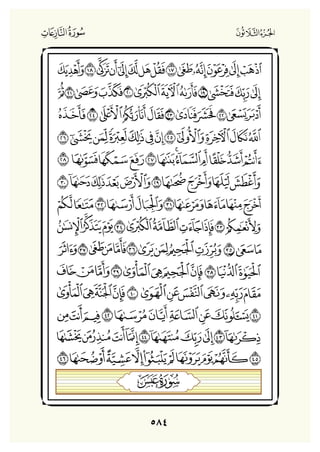 الجُزْءُ الثَّلَاثُونَ سُورَةُ النَّازِعَاتِ
ٱذْهَبْ إِلَىٰ فِرْعَوْنَ إِنَّهُۥ طَغَىٰ ١٧ فَقُلْ هَل لَّكَ إِلَىٰٓ أَن تَزَكَّىٰ ١٨ وَأَهْدِيَكَ
إِلَىٰ رَبِّكَ فَتَخْشَىٰ ١٩ فَأَرَىٰهُ ٱلْءَايَةَ ٱلْكُبْرَىٰ ٢٠ فَكَذَّبَ وَعَصَىٰ ٢١ ثُمَّ
أَدْبَرَ يَسْعَىٰ ٢٢ فَحَشَرَ فَنَادَىٰ ٢٣ فَقَالَ أَنَا۠ رَبُّكُمُ ٱلْأَعْلَىٰ ٢٤ فَأَخَذَهُ
ٱللَّهُ نَكَالَ ٱلْءَاخِرَةِ وَٱلْأُولَىٰٓ ٢٥ إِنَّ فِى ذَٰلِكَ لَعِبْرَةً لِّمَن يَخْشَىٰٓ ٢٦
ءَأَنتُمْ أَشَدُّ خَلْقًا أَمِ ٱلسَّمَآءُ ۚ بَنَىٰهَا ٢٧ رَفَعَ سَمْكَهَا فَسَوَّىٰهَا ٢٨
وَأَغْطَشَ لَيْلَهَا وَأَخْرَجَ ضُحَىٰهَا ٢٩ وَٱلْأَرْضَ بَعْدَ ذَٰلِكَ دَحَىٰهَآ ٣٠
أَخْرَجَ مِنْهَا مَآءَهَا وَمَرْعَىٰهَا ٣١ وَٱلْجِبَالَ أَرْسَىٰهَا ٣٢ مَتَٰعًا لَّكُمْ
وَلِأَنْعَٰمِكُمْ ٣٣ فَإِذَا جَآءَتِ ٱلطَّآمَّةُ ٱلْكُبْرَىٰ ٣٤ يَوْمَ يَتَذَكَّرُ ٱلْإِنسَٰنُ
مَا سَعَىٰ ٣٥ وَبُرِّزَتِ ٱلْجَحِيمُ لِمَن يَرَىٰ ٣٦ فَأَمَّا مَن طَغَىٰ ٣٧ وَءَاثَرَ
ٱلْحَيَوٰةَ ٱلدُّنْيَا ٣٨ فَإِنَّ ٱلْجَحِيمَ هِىَ ٱلْمَأْوَىٰ ٣٩ وَأَمَّا مَنْ خَافَ
مَقَامَ رَبِّهِۦ وَنَهَى ٱلنَّفْسَ عَنِ ٱلْهَوَىٰ ٤٠ فَإِنَّ ٱلْجَنَّةَ هِىَ ٱلْمَأْوَىٰ
٤١ يَسْـَٔلُونَكَ عَنِ ٱلسَّاعَةِ أَيَّانَ مُرْسَىٰهَا ٤٢ فِيمَ أَنتَ مِن
ذِكْرَىٰهَآ ٤٣ إِلَىٰ رَبِّكَ مُنتَهَىٰهَآ ٤٤ إِنَّمَآ أَنتَ مُنذِرُ مَن يَخْشَىٰهَا
٤٥ كَأَنَّهُمْ يَوْمَ يَرَوْنَهَا لَمْ يَلْبَثُوٓا۟ إِلَّا عَشِيَّةً أَوْ ضُحَىٰهَا ٤٦
سُورَةُ عَبَسَ
٥٨٤